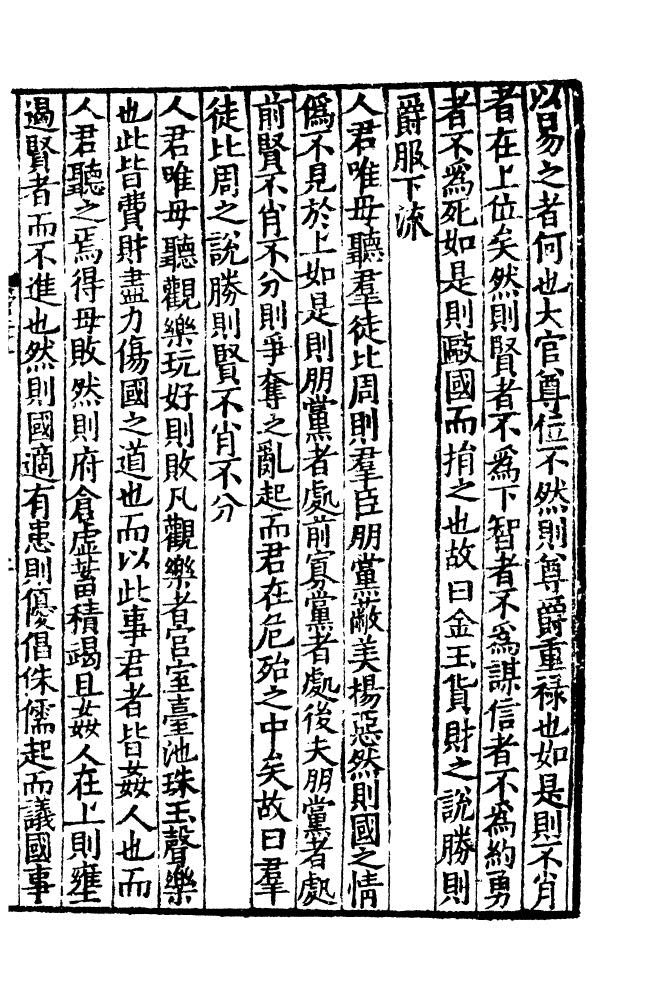 以易之者何也大官尊位不然則尊爵重祿也如是則不肖
者在上位矣然則賢者不爲下智者不爲謀信者不爲約勇
者不爲死如是則敺國而捐之也故曰金玉貨財之說勝則
爵服下流
人君唯毋聽羣徒比周則羣臣朋黨蔽美揚惡然則國之情
僞不見於上如是則朋黨者處前寡黨者處後夫朋黨者處
前賢不肖不分則爭奪之亂起而君在危殆之中矣故曰羣
徒比周之說勝則賢不肖不分
人君唯毋聽觀樂玩好則敗凡觀樂者宮室臺池珠玉聲樂
也此皆費財盡力傷國之道也而以此事君者皆姦人也而
人君聽之焉得毋敗然則府倉虛蓄積竭且姦人在上則壅
遏賢者而不進也然則國適有患則優倡侏儒起而議國事